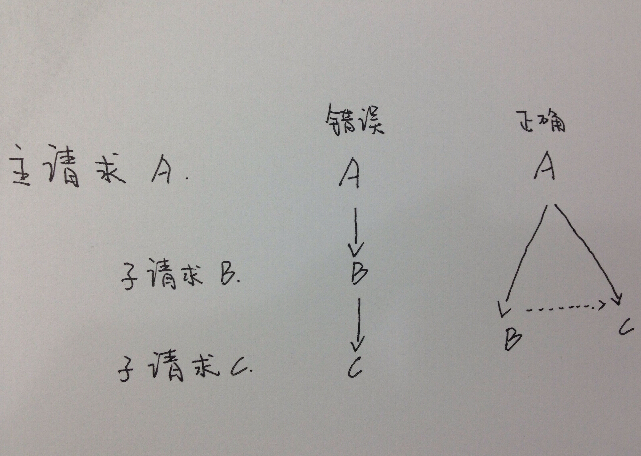 错误 正确
主请求 A. A A
子请求 B. B
B C
子请求 C. C